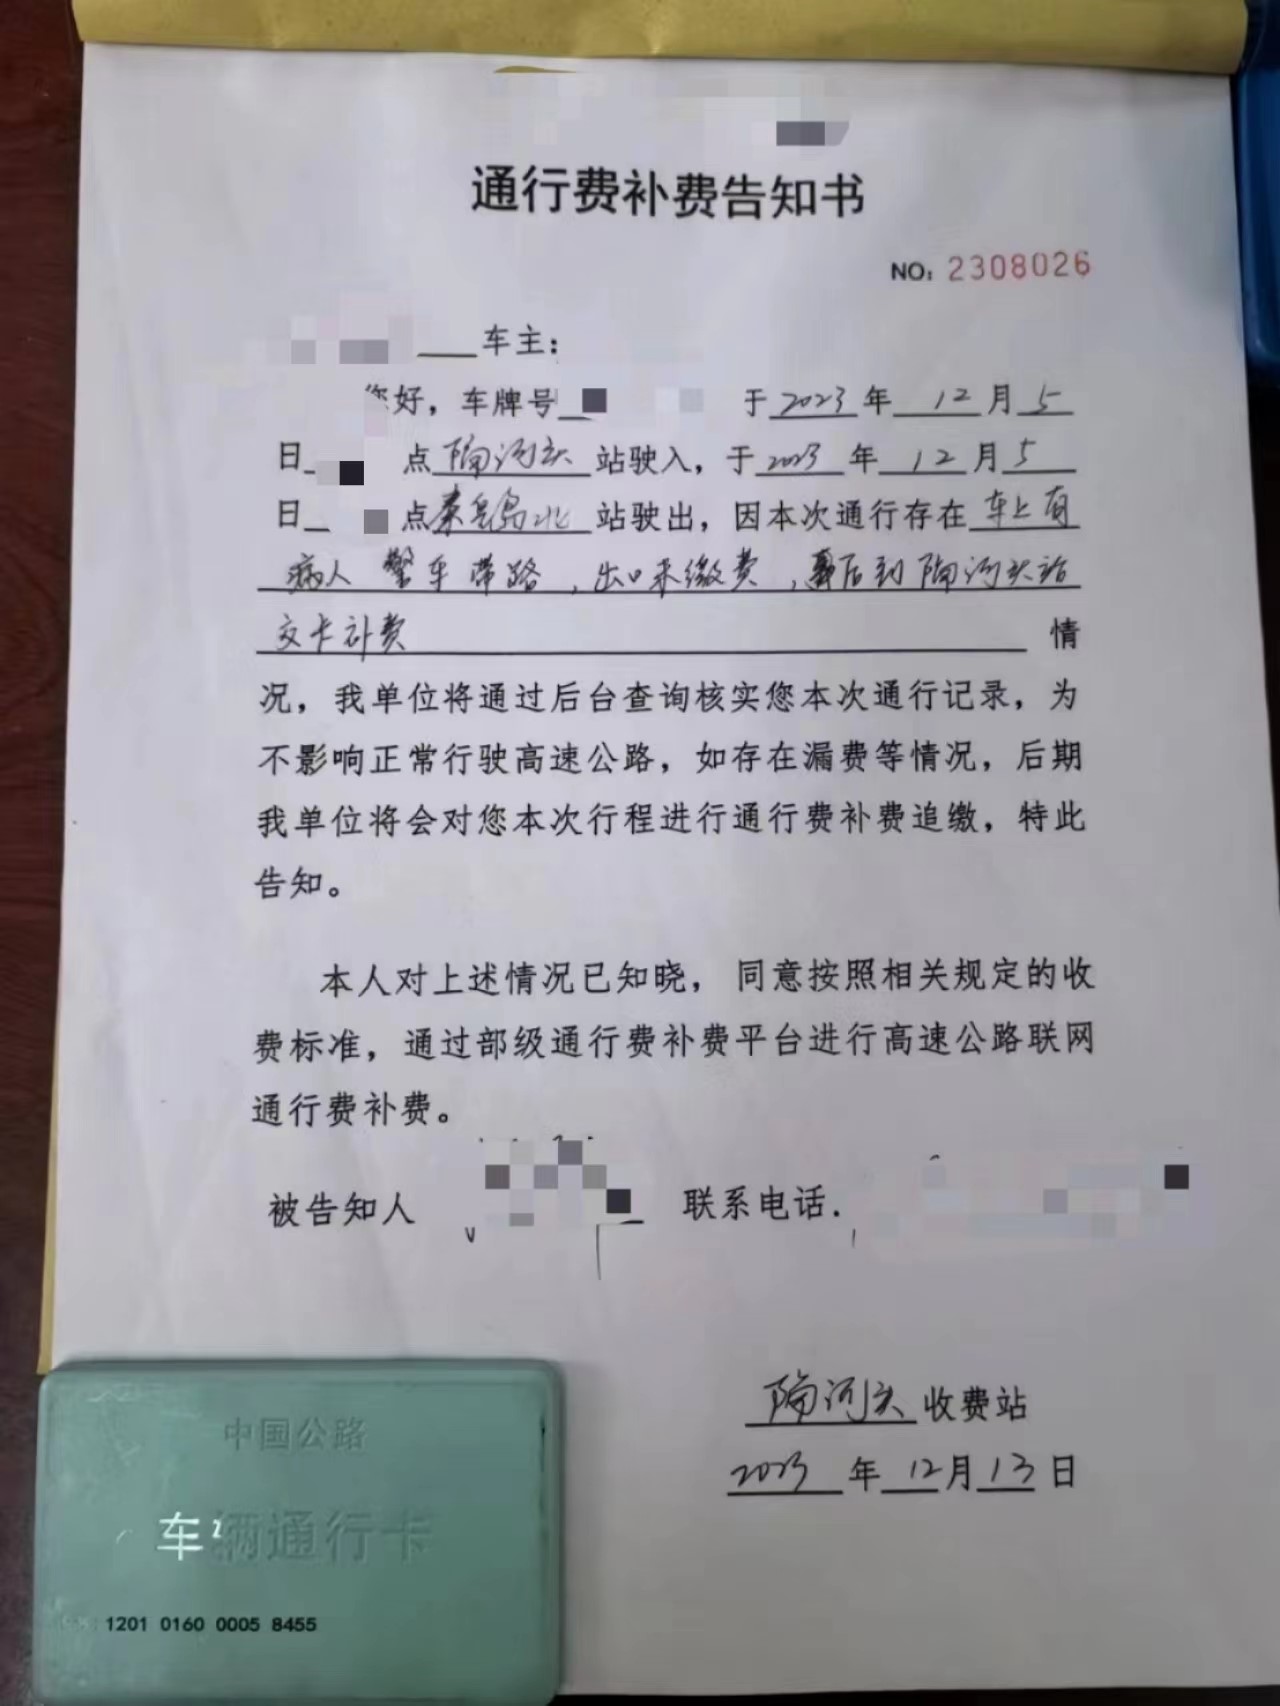 通行费补费告知书
NO: 2308026
车主：
您好，车牌号 于2023年12月5
日 点陶河头站驶入，于2023年12月5
日 点秦皇岛北站驶出，因本次通行存在车上有
病人警车带路，出口未缴费，事后到陶河头站
交卡补费 情
况，我单位将通过后台查询核实您本次通行记录，为
不影响正常行驶高速公路，如存在漏费等情况，后期
我单位将会对您本次行程进行通行费补费追缴，特此
告知。
本人对上述情况已知晓，同意按照相关规定的收
费标准，通过部级通行费补费平台进行高速公路联网
通行费补费。
被告知人 联系电话.
陶河头收费站
2023年12月13日
中国公路
车辆通行卡
1201 0160 0005 8455